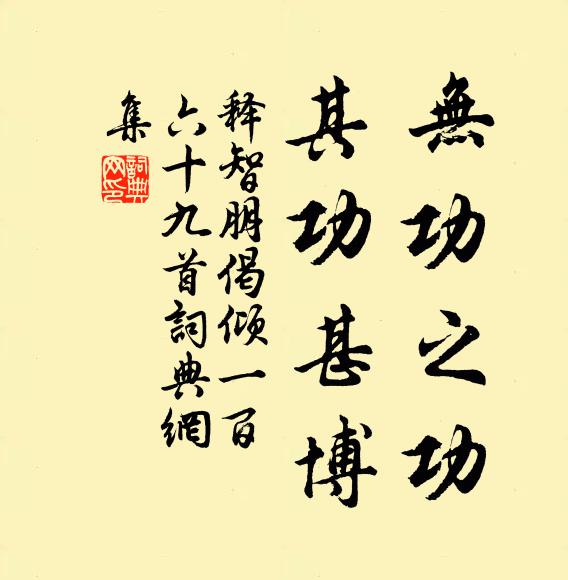 無功之功
其功甚博
释智朋偈倾一百
六十九首詞典網
集
詞典
网印